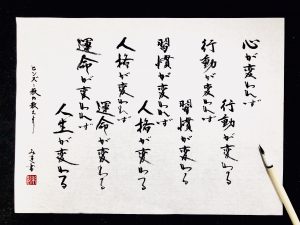 心が変われば
行動が変わる
行動が変われば
習慣が変わる
習慣が変われば
人格が変わる
人格が変われば
運命が変わる
運命が変われば
人生が変わる
ヒンズー教の教えより